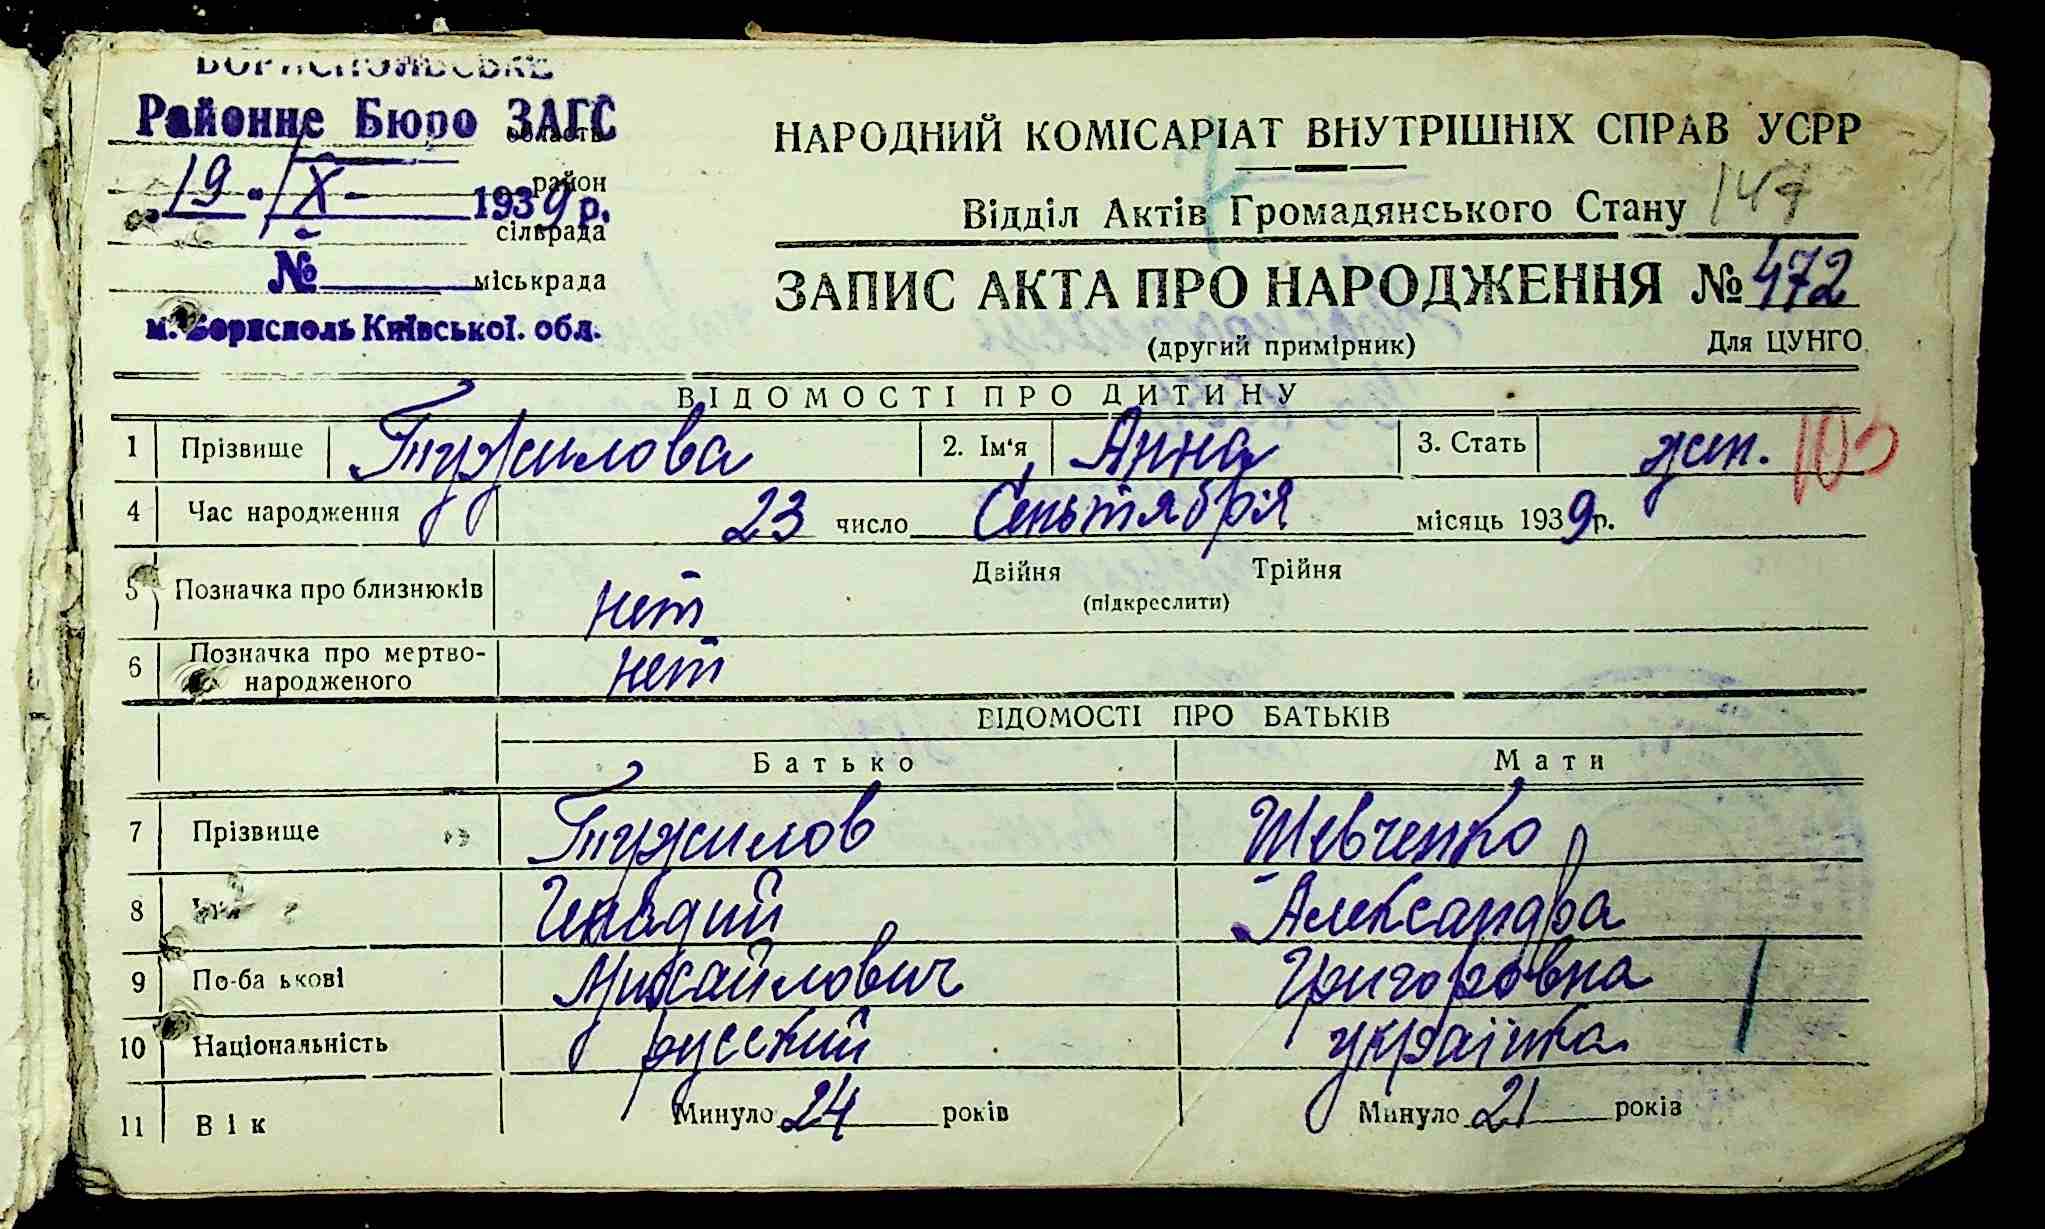 БОРИСПОЛЬСЬКЕ
Районне Бюро ЗАГС
область
19 " X - 1939 р.
район
сільрада
№
міськрада
м. Бориспіль Київської. обл.
НАРОДНИЙ КОМІСАРІАТ ВНУТРІШНІХ СПРАВ УСРР
Відділ Актів Громадянського Стану 147
ЗАПИС АКТА ПРО НАРОДЖЕННЯ № 472
(другий примірник) Для ЦУНГО
ВІДОМОСТІ ПРО ДИТИНУ
1 Прізвище Тружилова 2. Ім'я Анна 3. Стать жен. 103
4 Час народження 23 число Сеньтября місяць 1939р.
5 Позначка про близнюків нет Двійня Трійня
(підкреслити)
6 Позначка про мертво-
народженого нет
ВІДОМОСТІ ПРО БАТЬКІВ
Батько Мати
7 Прізвище Тружилов Шевченко
8 Генадий Александра
9 По-ба ькові Михайлович Григоровна
10 Національність русский українка
11 Вік Минуло 24 років Минуло 21 років